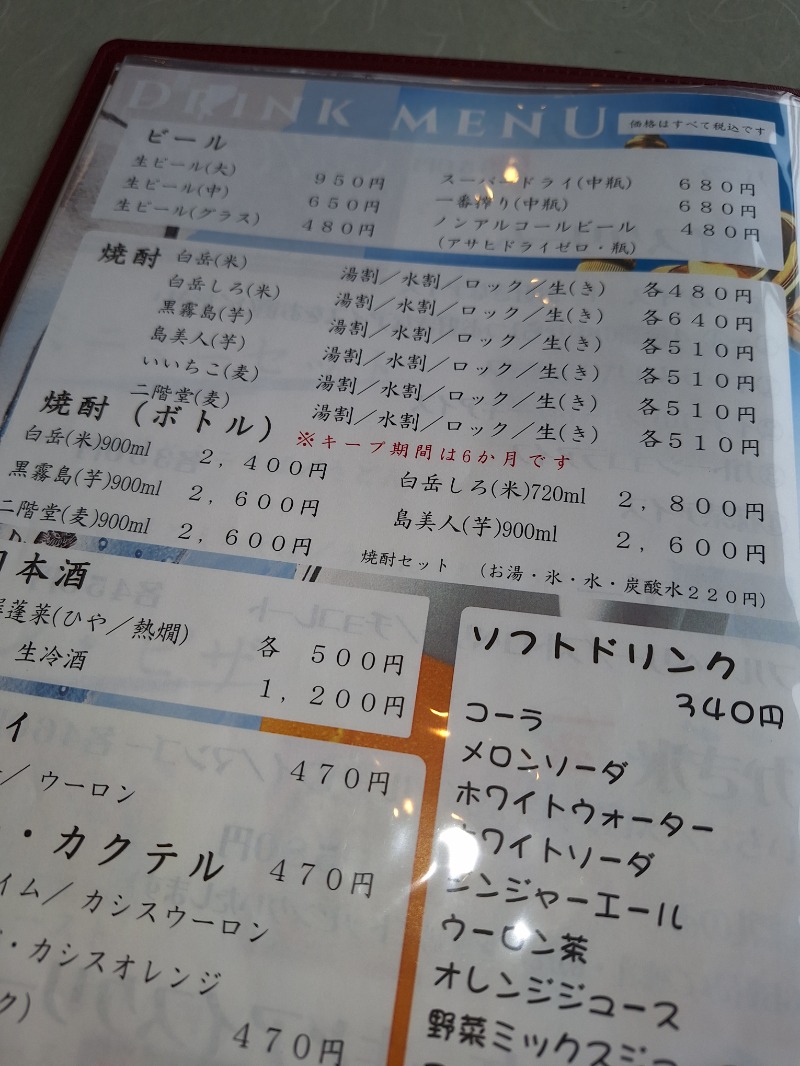 DRINK MENU
価格はすべて税込です
ビール
生ビール(大) 950円
生ビール(中) 650円
生ビール(グラス) 480円
スーパードライ(中瓶) 680円
一番搾り(中瓶) 680円
ノンアルコールビール 480円
(アサヒドライゼロ・瓶)
焼酎
白岳(米) 湯割/水割/ロック/生(き) 各480円
白岳しろ(米) 湯割/水割/ロック/生(き) 各640円
黒霧島(芋) 湯割/水割/ロック/生(き) 各510円
島美人(芋) 湯割/水割/ロック/生(き) 各510円
いいちこ(麦) 湯割/水割/ロック/生(き) 各510円
二階堂(麦) 湯割/水割/ロック/生(き) 各510円
焼酎(ボトル)
※キープ期間は6か月です
白岳(米)900ml 2,400円
黒霧島(芋)900ml 2,600円
二階堂(麦)900ml 2,600円
白岳しろ(米)720ml 2,800円
島美人(芋)900ml 2,600円
焼酎セット (お湯・氷・水・炭酸水220円)
本酒
蓬莱(ひや/熱燗) 各 500円
生冷酒 1,200円
イ 470円
/ ウーロン
・カクテル 470円
イム/ カシスウーロン
・カシスオレンジ
ク)
470円
ソフトドリンク
340円
コーラ
メロンソーダ
ホワイトウォーター
ホワイトソーダ
ジンジャーエール
ウーロン茶
オレンジジュース
野菜ミックスジュー